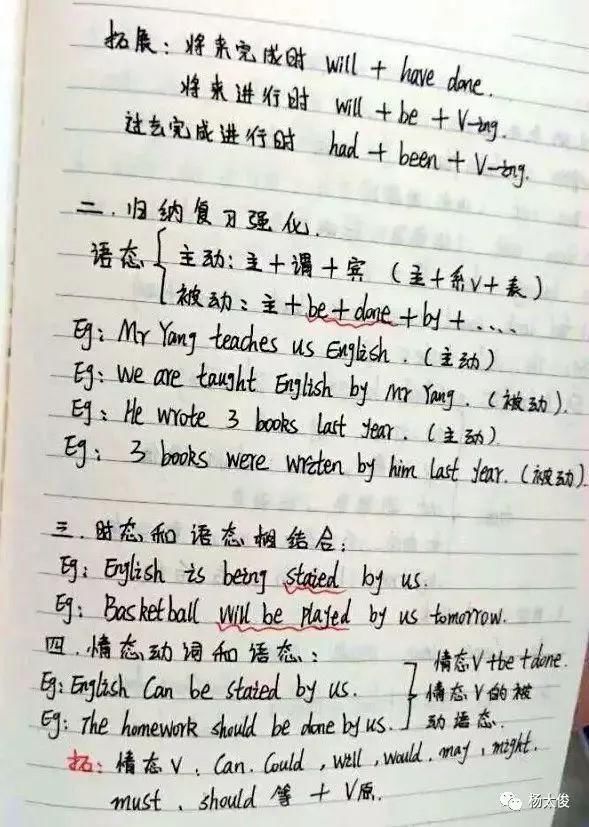 拓展：将来完成时 will + have done.
将来进行时 will + be + V-ing.
过去完成进行时 had + been + V-ing.
二.归纳复习强化.
语态 主动：主+谓+宾 （主+系V+表）
被动：主+be+done+by+....
Eg: Mr Yang teaches us English.（主动）
Eg: We are taught English by Mr Yang.（被动）.
Eg: He wrote 3 books last year.（主动）
Eg: 3 books were wrten by him last year.（被动）
三.时态和语态相结合：
Eg: English is being staied by us.
Eg: Basketball will be played by us tomorrow.
四.情态动词和语态：
Eg: English Can be staied by us.
Eg: The homework should be done by us.
情态V+be+done.
情态V的被
动语态.
拓：情态V：Can. Could, will, would. may, might.
must、should 等 + V原.
杨太俊